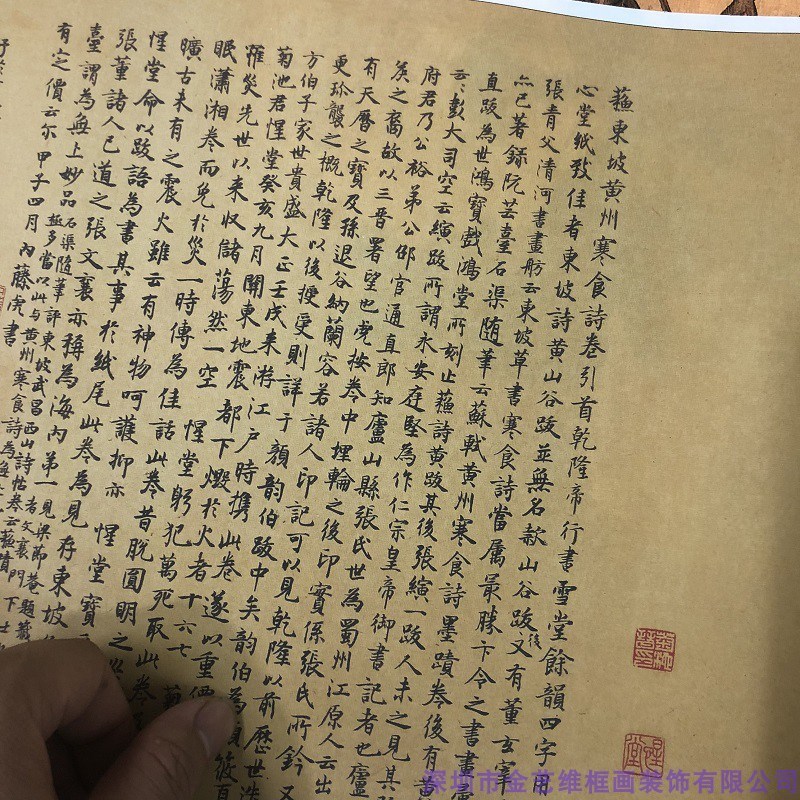 蘇東坡黄州寒食詩卷引首乾隆帝行書雪堂餘韻四字用
心堂紙致佳者東坡詩黄山谷跋並無名款山谷跋後又有董玄宰
張青父清河書畫舫云東坡草書寒食詩當属最勝卞令之書畫
亦已著録阮芸臺石渠随筆云蘇軾黄州寒食詩墨蹟卷後有黄
直跋為世鴻寶戲鴻堂所刻止蘓詩黄跋其後張縯一跋人未之見其
云〻彭大司空云縯跋所謂永安庭堅為作仁宗皇帝御書記者也廬
府君乃公裕弟公邵官通直郎知廬山縣張氏世為蜀州江原人云出
矦之裔故以三晋署望也按卷中埋輪之後印實係張氏所鈐又
有天曆之寶及孫退谷納蘭容若諸人印記可以見乾隆以前歷世
更珎襲之概乾隆以後授受則詳于顔韵伯跋中矣韵伯為
方伯子家世貴盛大正壬戌来游江戸時携此卷遂以重價
菊池君惺堂癸亥九月關東地震都下燬於火者十六七
罹災先世以来収儲蕩然一空惺堂躬犯萬死取此卷
眠瀟湘卷而免於災一時傳為佳話此卷昔脱圓明之
曠古未有之震火雖云有神物呵護抑亦惺堂寶
惺堂命以跋語為書其事於紙尾此卷為見存東坡
張董諸人已道之張文襄亦稱為海内第一見梁節菴題籤
臺謂為無上妙品石渠随筆評東坡武昌西山詩帖卷云蘓蹟
極多當以此與黄州寒食詩為無
有定價云尓甲子四月内藤虎書
惺堂
深圳市金芒维框画装饰有限公司